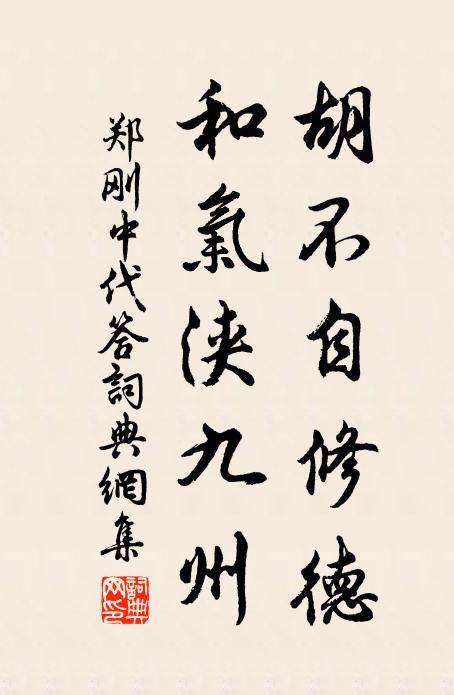 胡不自修德
和氣浹九州
郑刚中代答詞典網集
詞典网印